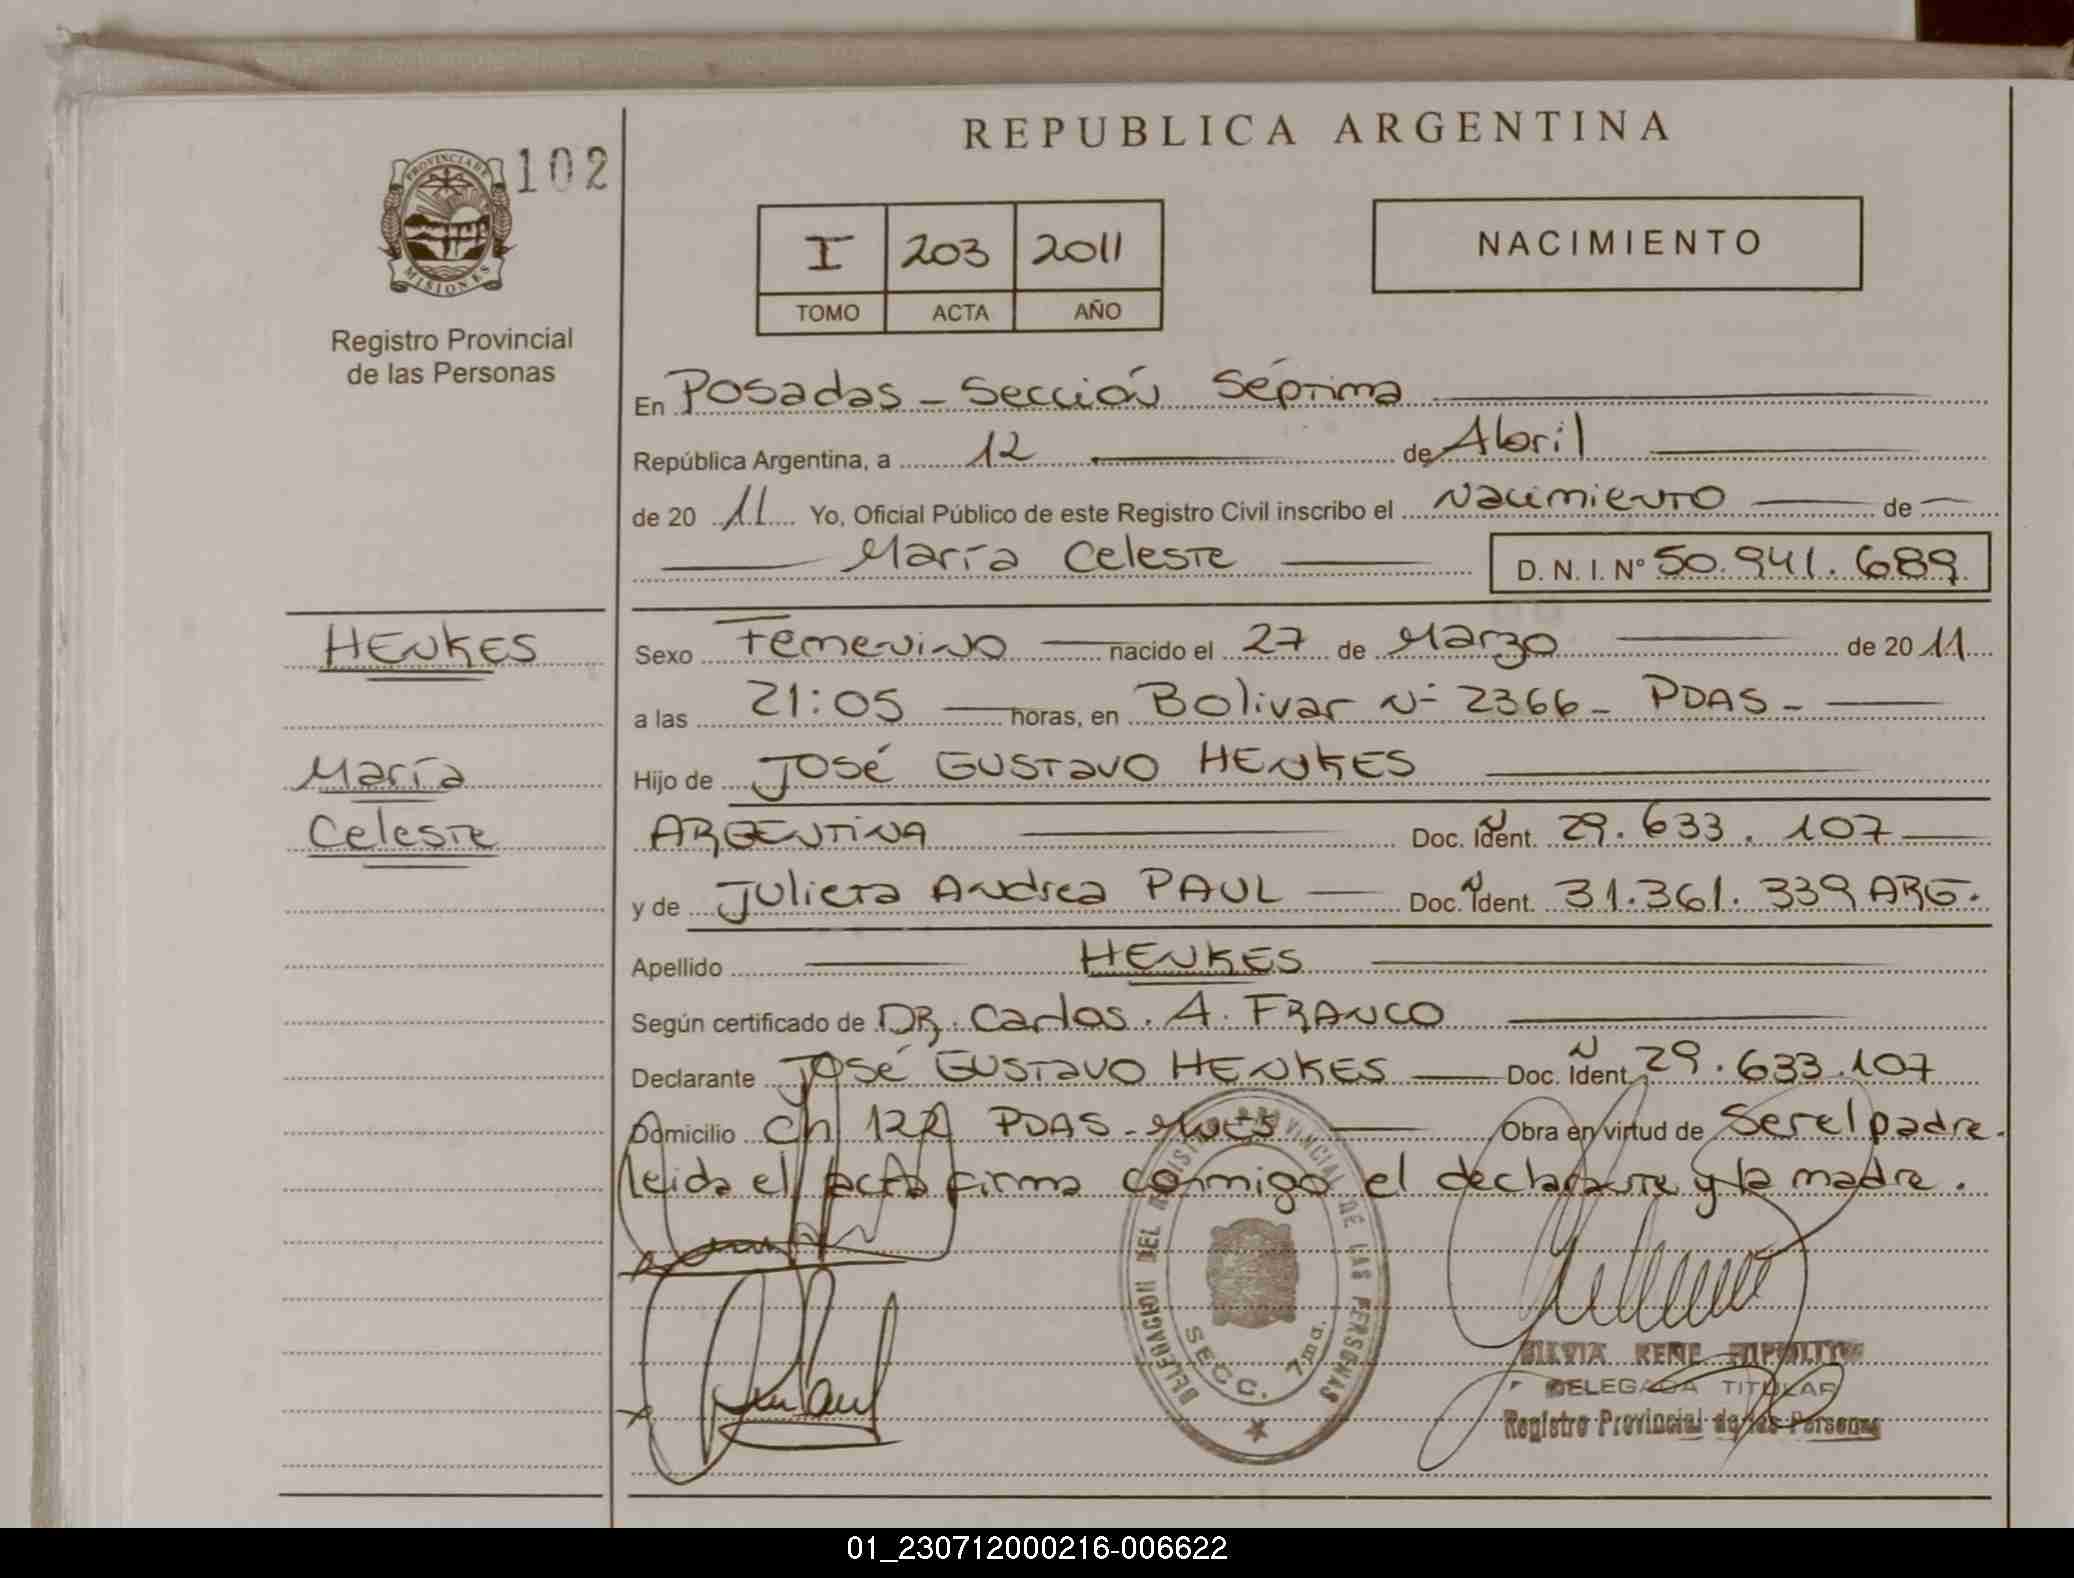 REPUBLICA ARGENTINA
102
PROVINCIA DE
MISIONES
Registro Provincial
de las Personas
I 203 2011
TOMO ACTA AÑO
NACIMIENTO
En Posadas - Sección Séptima
República Argentina, a 12 de Abril
de 20 11 Yo, Oficial Público de este Registro Civil inscribo el Nacimiento de
María Celeste D. N. I. N° 50.941.689
HENKES
María
Celeste
Sexo Femenino nacido el 27 de Marzo de 20 11
a las 21:05 horas, en Bolivar N- 2366 - PDAS -
Hijo de José GUSTavo HENKES
ARGENTINA Doc. Ident. 29.633.107
y de Julieta Andrea PAUL Doc. Ident. 31.361.339 ARG.
Apellido HENKES
Según certificado de DR. Carlos. A. FRANCO
Declarante José GUSTavo HENKES Doc. Ident. 29.633.107
Domicilio Ch 122 PDAS - Mnes Obra en virtud de Ser el padre.
leida el acta firma conmigo el declarante y la madre.
DELEGACION DEL REGISTRO PROVINCIAL DE LAS PERSONAS
SECC. 7ma.
SILVIA RENE
DELEGADA TITULAR
Registro Provincial de las Personas
01_230712000216-006622